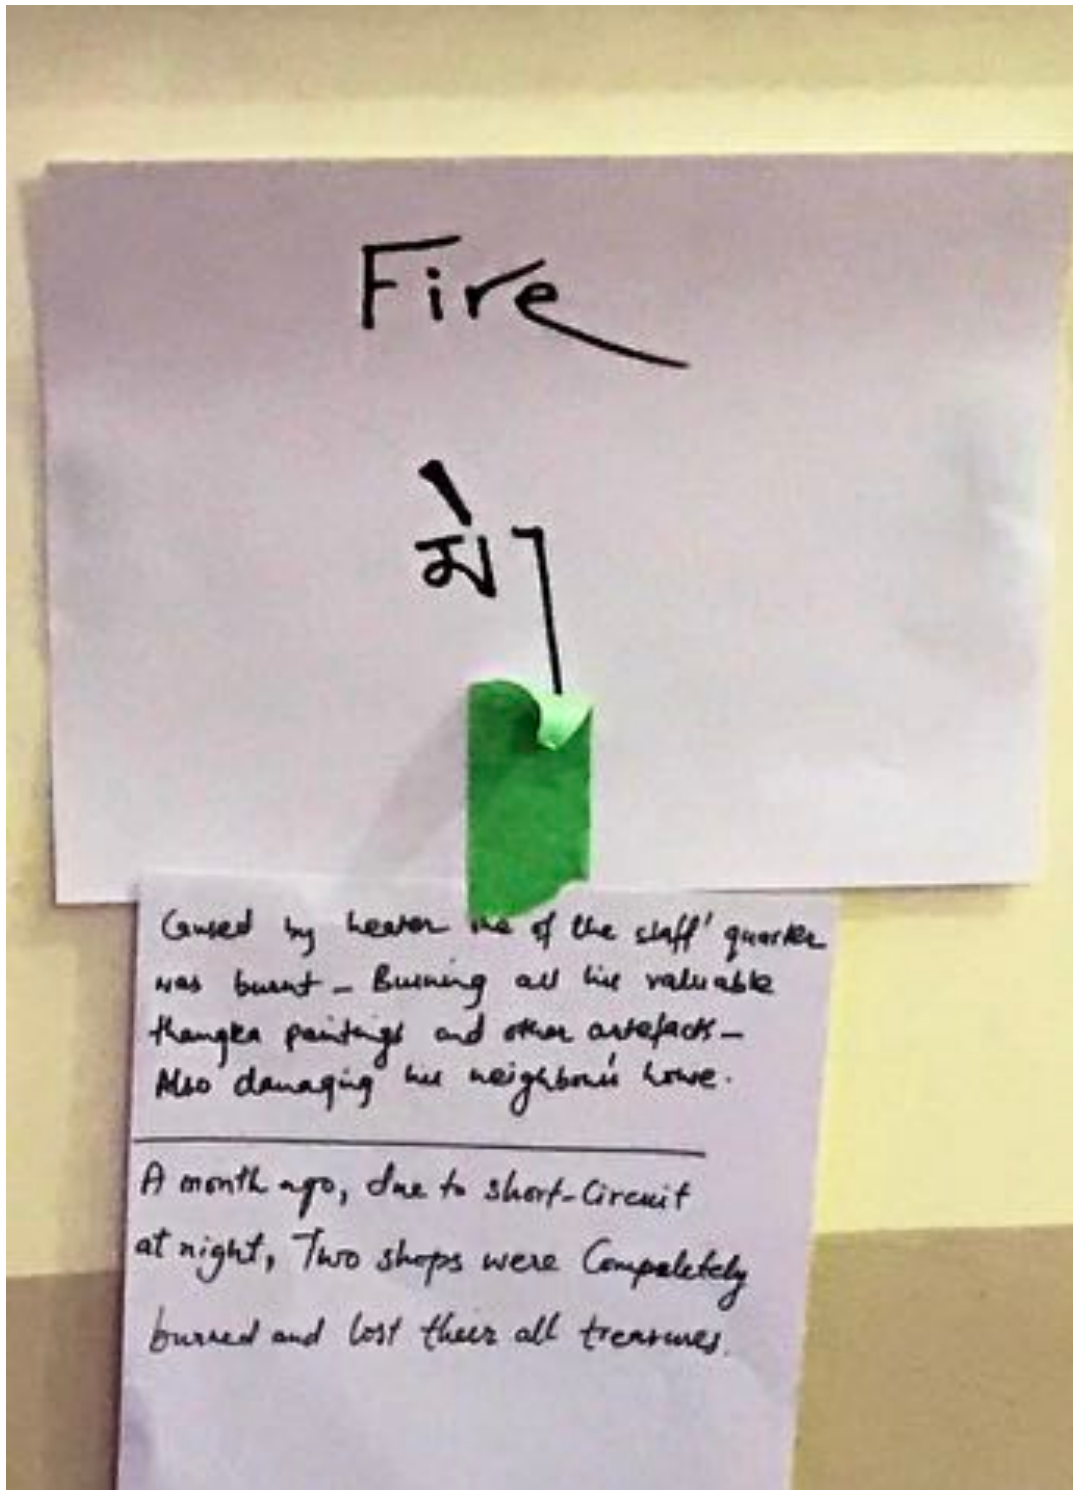 Fire
མེ།
Caused by heater one of the staff' quarter
was burnt - Burning all his valuable
thangka paintings and other artefacts -
Also damaging his neighbour's house.
A month ago, due to short-Circuit
at night, Two shops were Compaletely
burned and lost their all treasures.